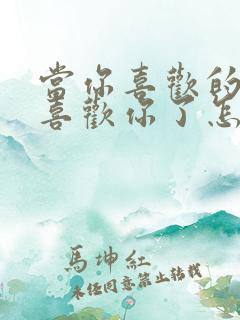 當你喜歡的
喜歡你了怎
馬坤紅
未经同意禁止转载